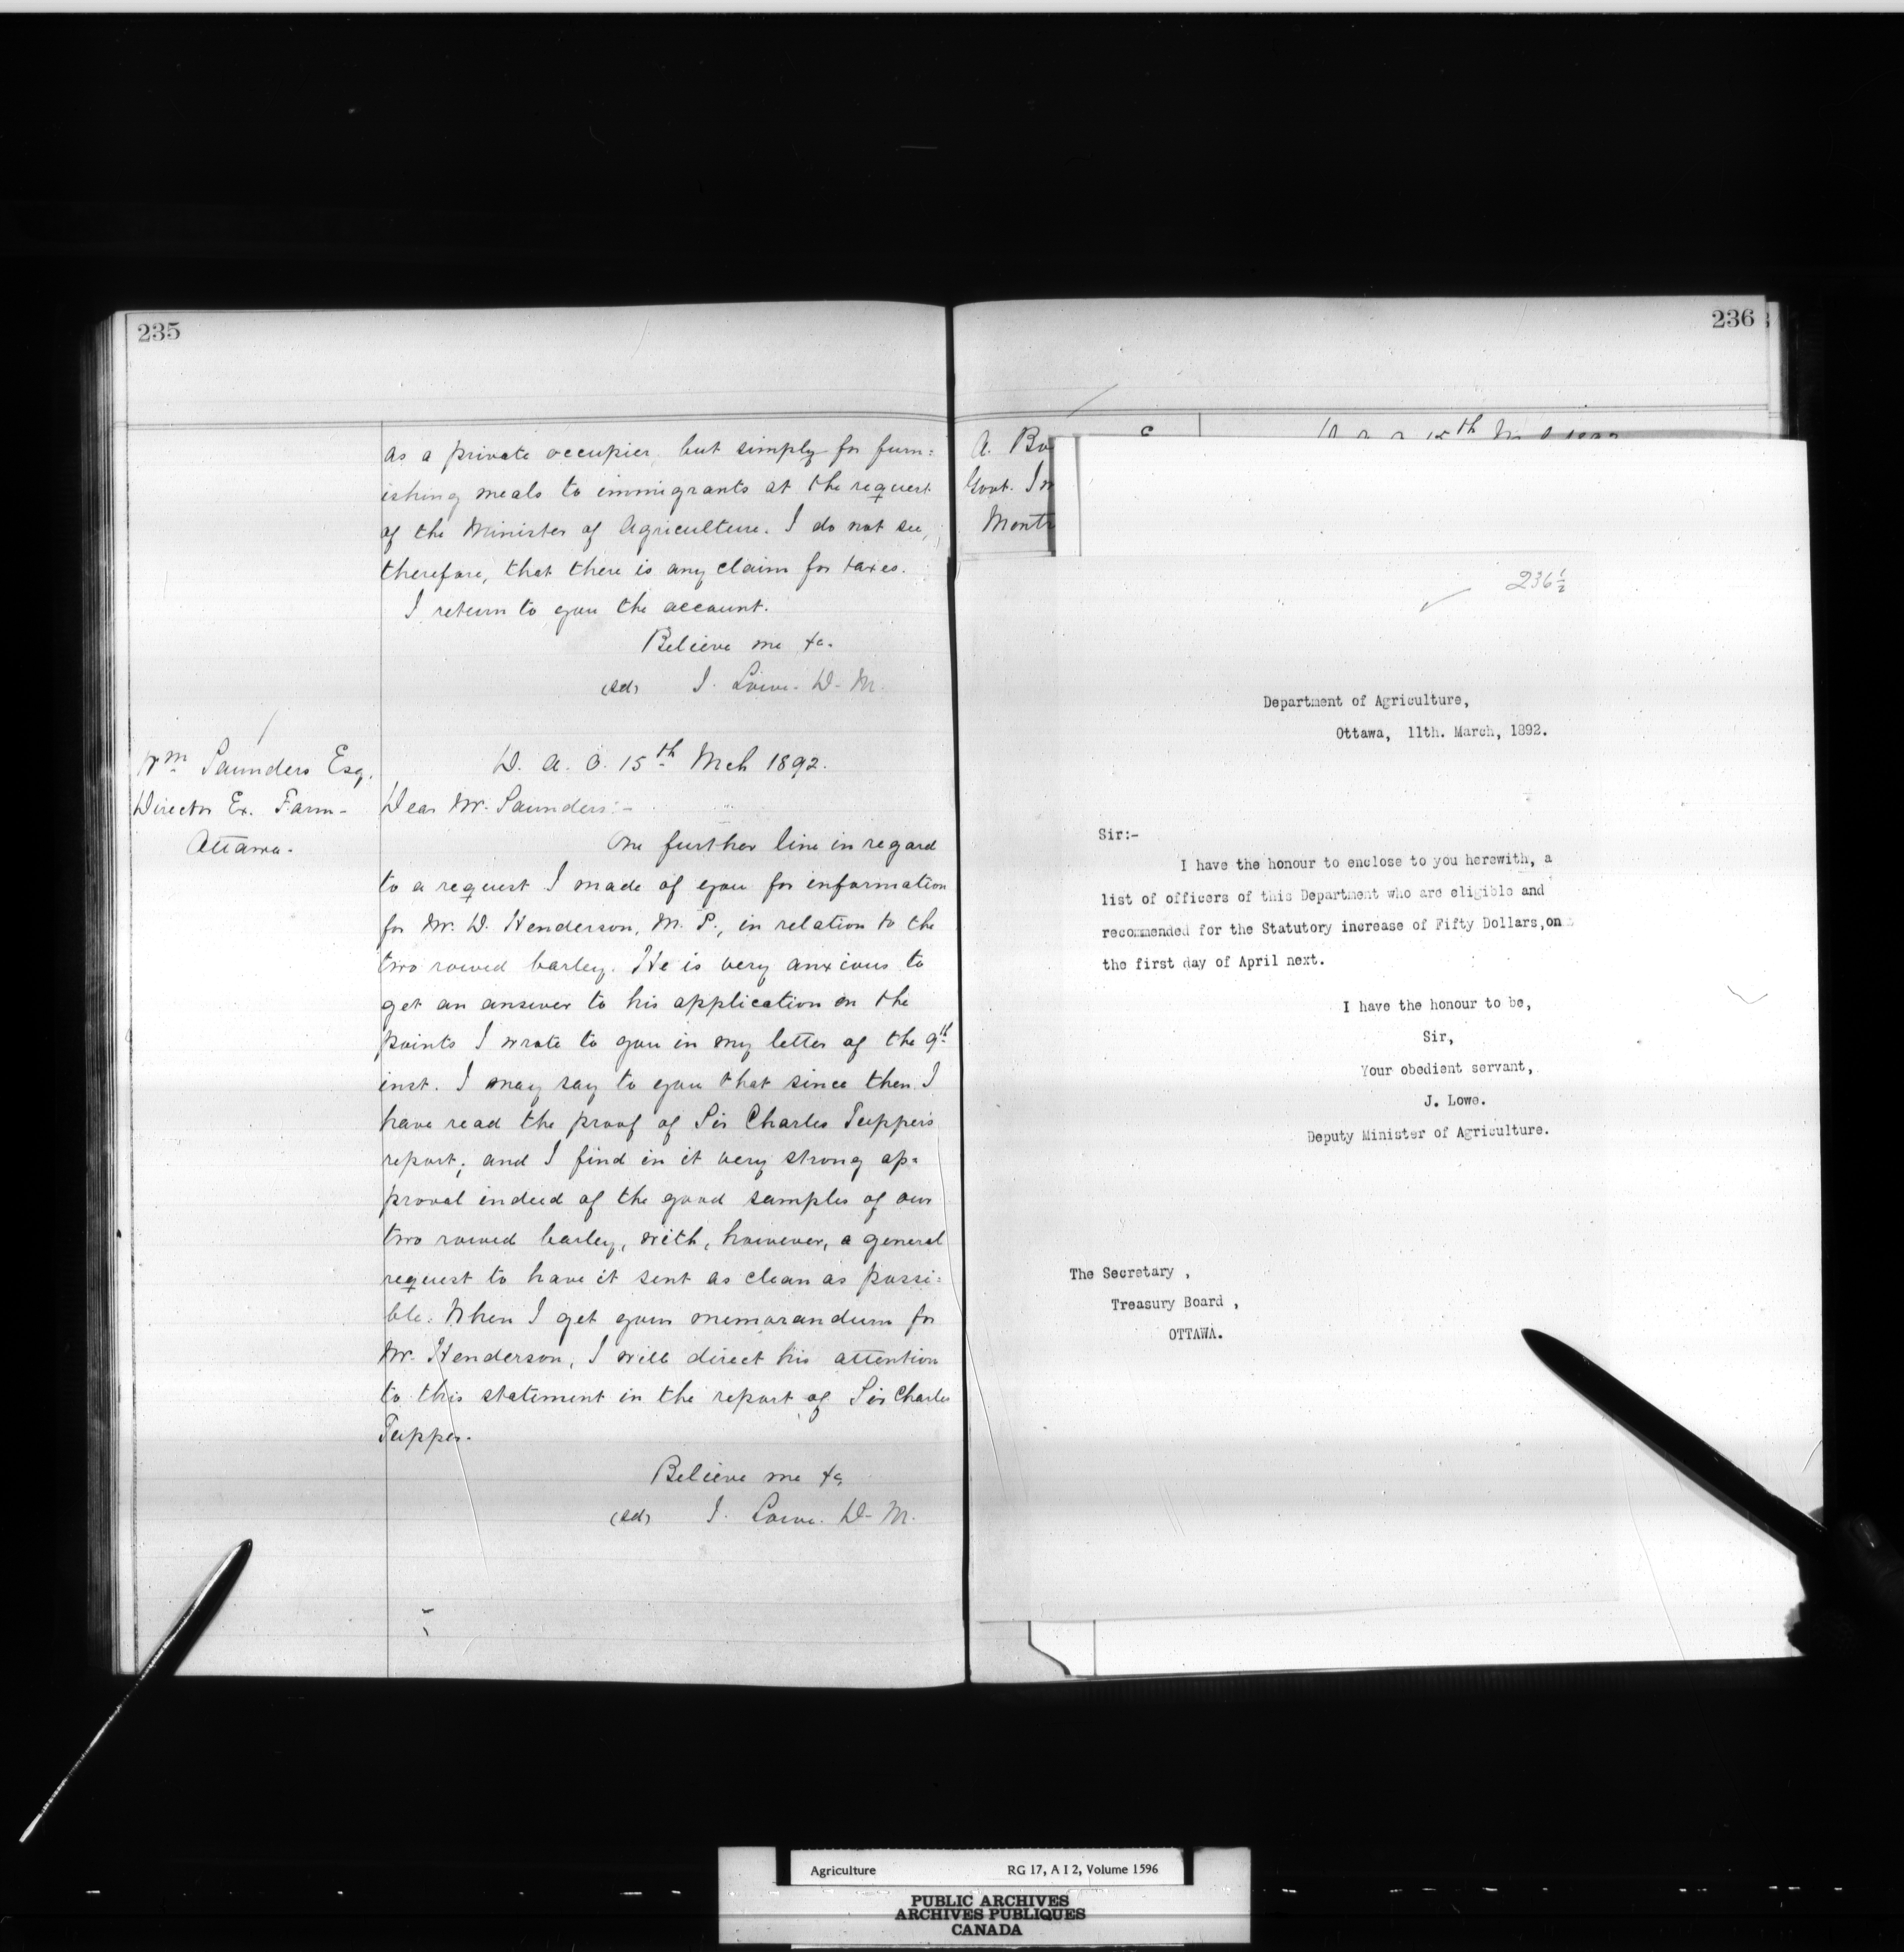 235
as a private occupier, but simply for furn=
ishing meals to immigrants at the request
of the Minister of Agriculture. I do not see,
therefore, that there is any claim for taxes.
I return to you the account.
Believe me &c.
(sd) J. Lowe. D. M.
Wm Saunders Esq.
Director Ex. Farm-
Ottawa.
D. A. O. 15th Mch 1892.
Dear Mr. Saunders:-
One further line in regard
to a request I made of you for information
for Mr. D. Henderson, M. P., in relation to the
two rowed barley. He is very anxious to
get an answer to his application on the
points I wrote to you in my letter of the 9th
inst. I may say to you that since then I
have read the proof of Sir Charles Tuppers
report; and I find in it very strong ap=
proval indeed of the good samples of our
two rowed barley, with, however, a general
request to have it sent as clean as possi=
ble. When I get your memorandum for
Mr. Henderson, I will direct his attention
to this statement in the report of Sir Charles
Tupper.
Believe me &c
(sd) J. Lowe. D. M.
236
A. Bo
Govt. Im
Montr
236½
Department of Agriculture,
Ottawa, 11th. March, 1892.
Sir:-
I have the honour to enclose to you herewith, a
list of officers of this Department who are eligible and
recommended for the Statutory increase of Fifty Dollars,on
the first day of April next.
I have the honour to be,
Sir,
Your obedient servant,
J. Lowe.
Deputy Minister of Agriculture.
The Secretary ,
Treasury Board ,
OTTAWA.
Agriculture RG 17, A I 2, Volume 1596
PUBLIC ARCHIVES
ARCHIVES PUBLIQUES
CANADA